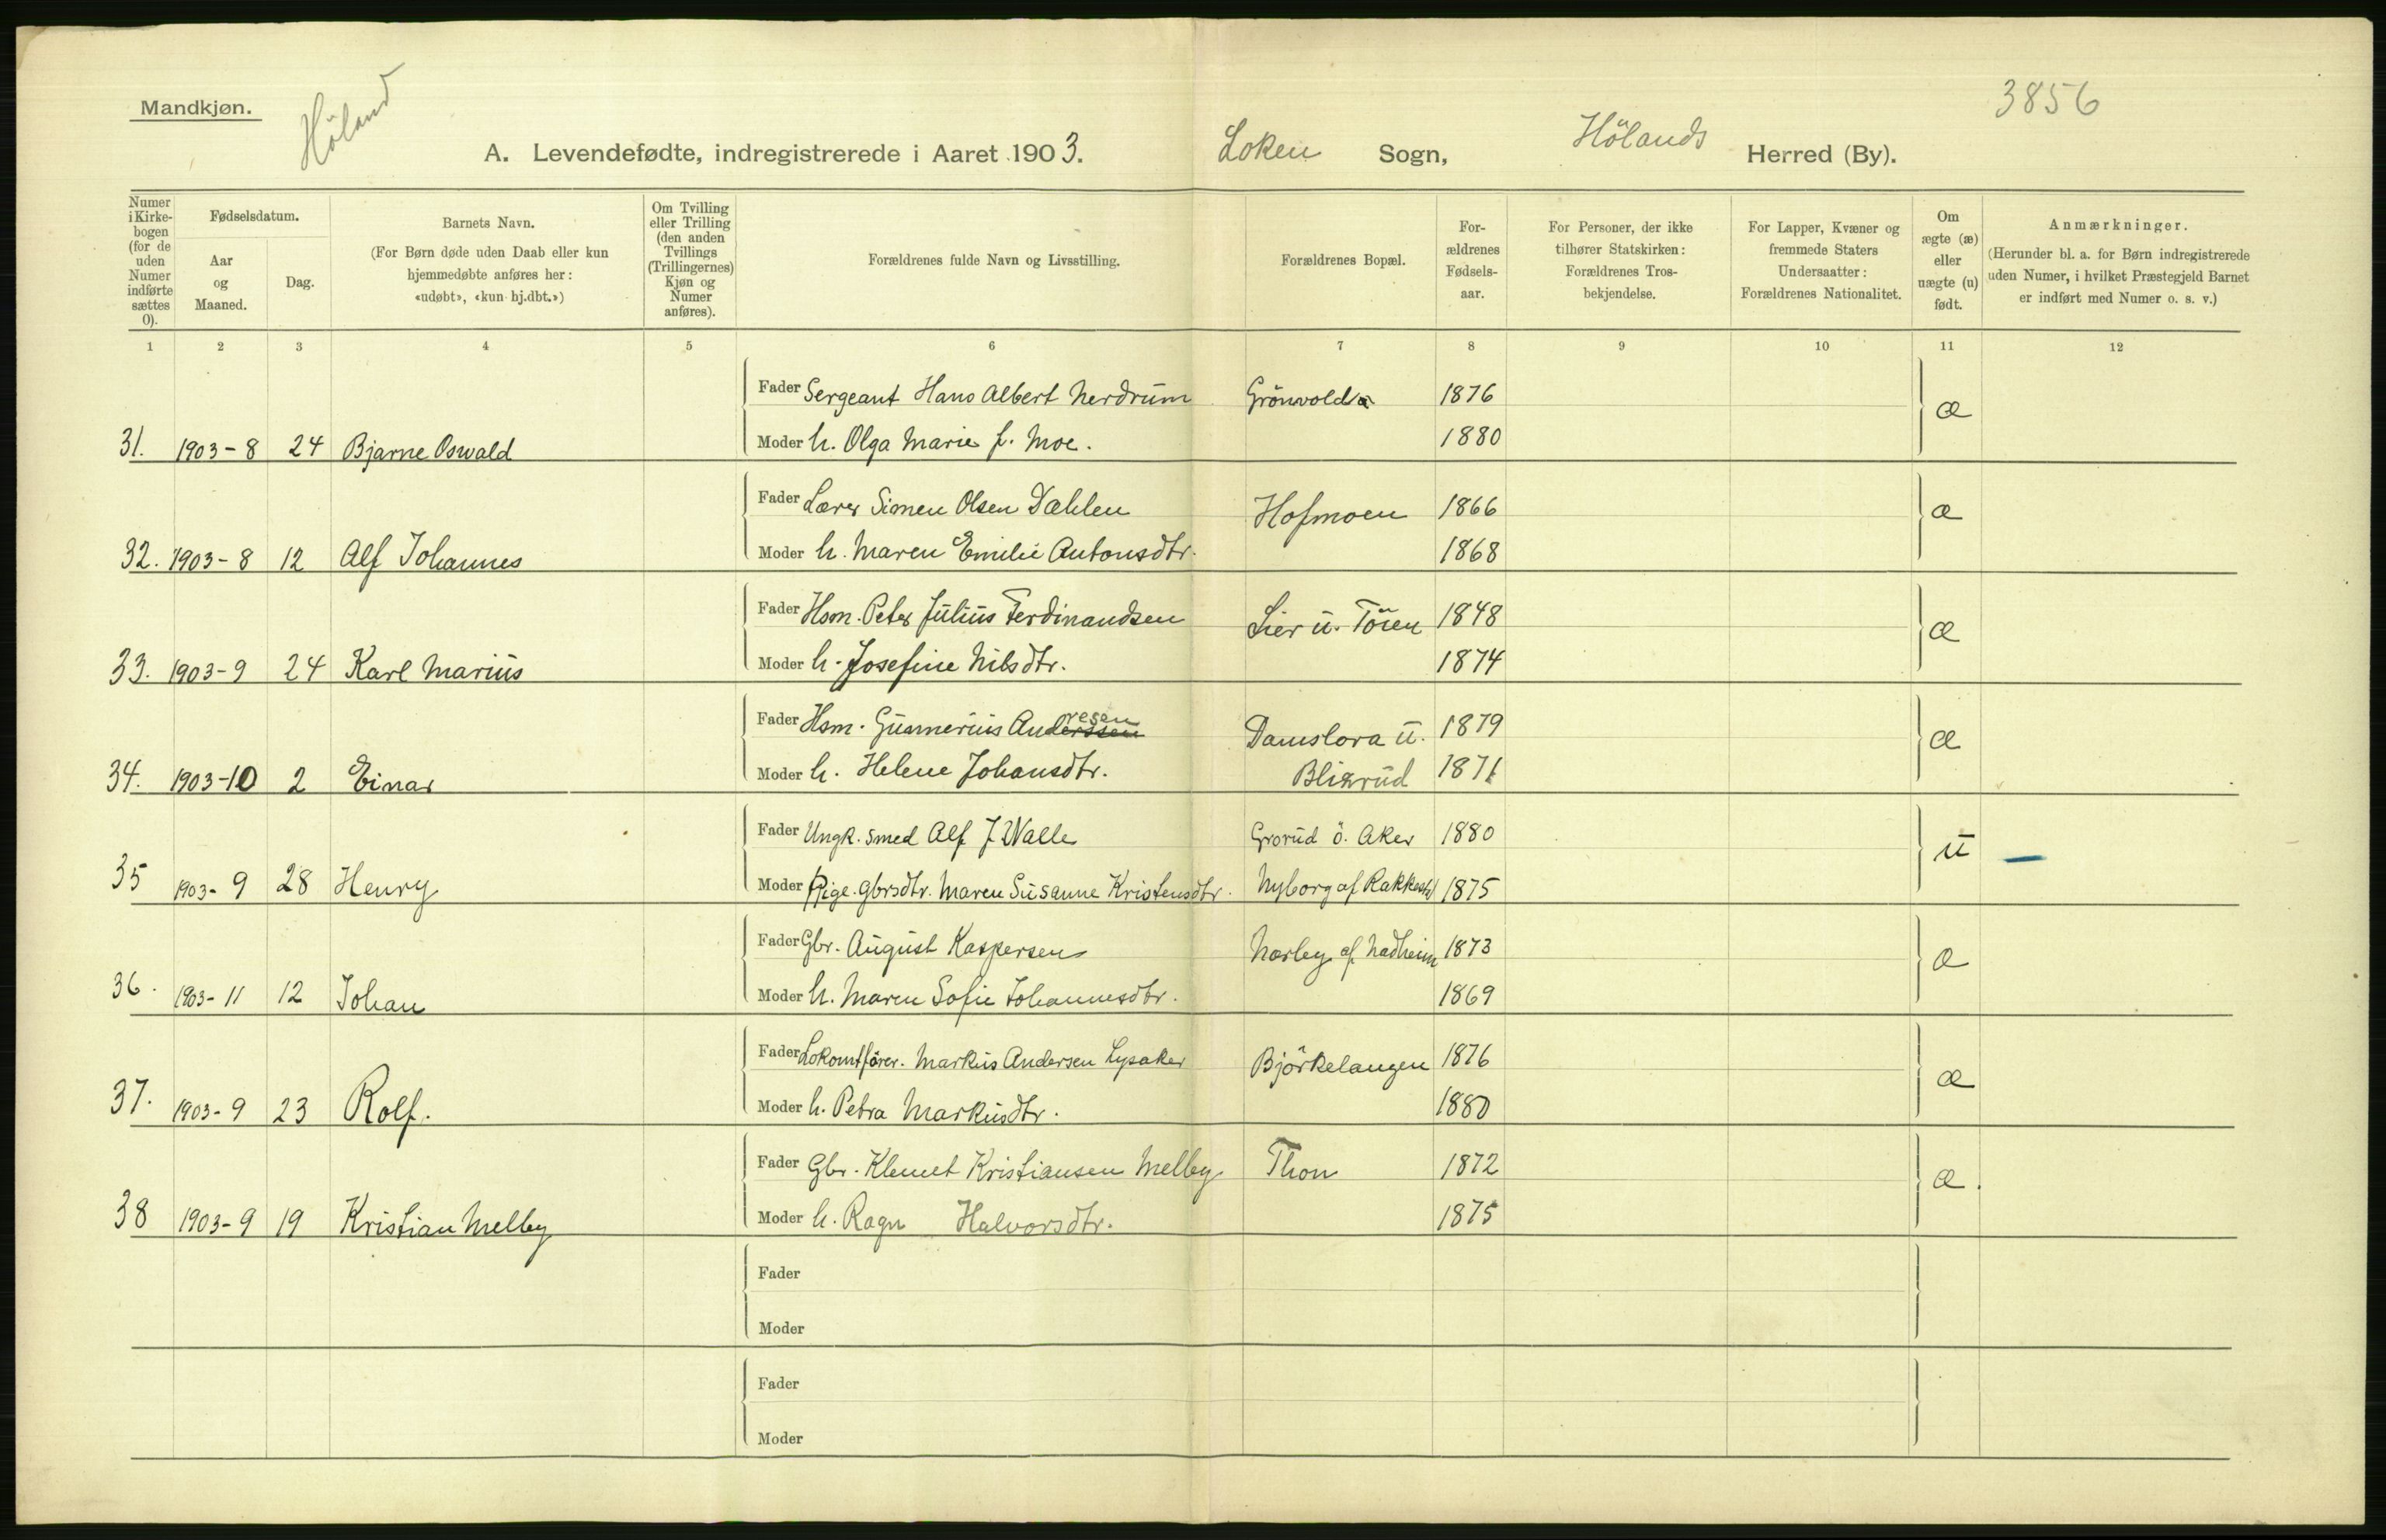 Mandkjøn.
Höland
3856
A. Levendefødte, indregistrerede i Aaret 1903. Loken Sogn, Hölands Herred (By).
Numer i Kirkebogen (for de uden Numer indførte sættes 0).
Fødselsdatum.
Aar og Maaned.
Dag.
Barnets Navn.
(For Børn døde uden Daab eller kun hjemmedøbte anføres her: «udøbt», «kun hj.dbt.»)
Om Tvilling eller Trilling (den anden Tvillings (Trillingernes) Kjøn og Numer anføres).
Forældrenes fulde Navn og Livsstilling.
Forældrenes Bopæl.
Forældrenes Fødselsaar.
For Personer, der ikke tilhører Statskirken: Forældrenes Trosbekjendelse.
For Lapper, Kvæner og fremmede Staters Undersaatter: Forældrenes Nationalitet.
Om ægte (æ) eller uægte (u) født.
Anmærkninger.
(Herunder bl. a. for Børn indregistrerede uden Numer, i hvilket Præstegjeld Barnet er indført med Numer o. s. v.)
1 2 3 4 5 6 7 8 9 10 11 12
Fader Sergeant Hans Albert Nerdrum Grönvold 1876 æ
31. 1903-8 24 Bjarne Oswald Moder h. Olga Marie f. Moe. 1880
Fader Lærer Simen Olsen Dæhlen Hofmoen 1866 æ
32. 1903-8 12 Alf Johannes Moder h. Maren Emilie Antonsdtr. 1868
Fader Hsm. Peter Julius Ferdinandsen Lier u. Töien 1848 æ
33. 1903-9 24 Karl Marius Moder h. Josefine Nilsdtr. 1874
Fader Hsm. Gunnerius Anderssen resen Damslora u. 1879 æ
34. 1903-10 2 Einar Moder h. Helene Johansdtr. Blixrud 1871
Fader Ungk. smed Alf J Walle Grorud ö. Aker 1880 u
35 1903-9 28 Henry Moder Pige. Gbrsdtr. Maren Susanne Kristensdtr. Nyborg af Rakkestd 1875
Fader Gbr. August Kaspersen Norby af Nadheim 1873 æ
36. 1903-11 12 Johan Moder h. Maren Sofie Johannesdtr. 1869
Fader Lokomtförer. Markus Andersen Lysaker Björkelangen 1876 æ
37. 1903-9 23 Rolf. Moder h. Petra Markusdtr. 1880
Fader Gbr. Klemet Kristiansen Melby Thon 1872 æ.
38 1903-9 19 Kristian Melby Moder h. Ragn Halvorsdtr. 1875
Fader
Moder
Fader
Moder